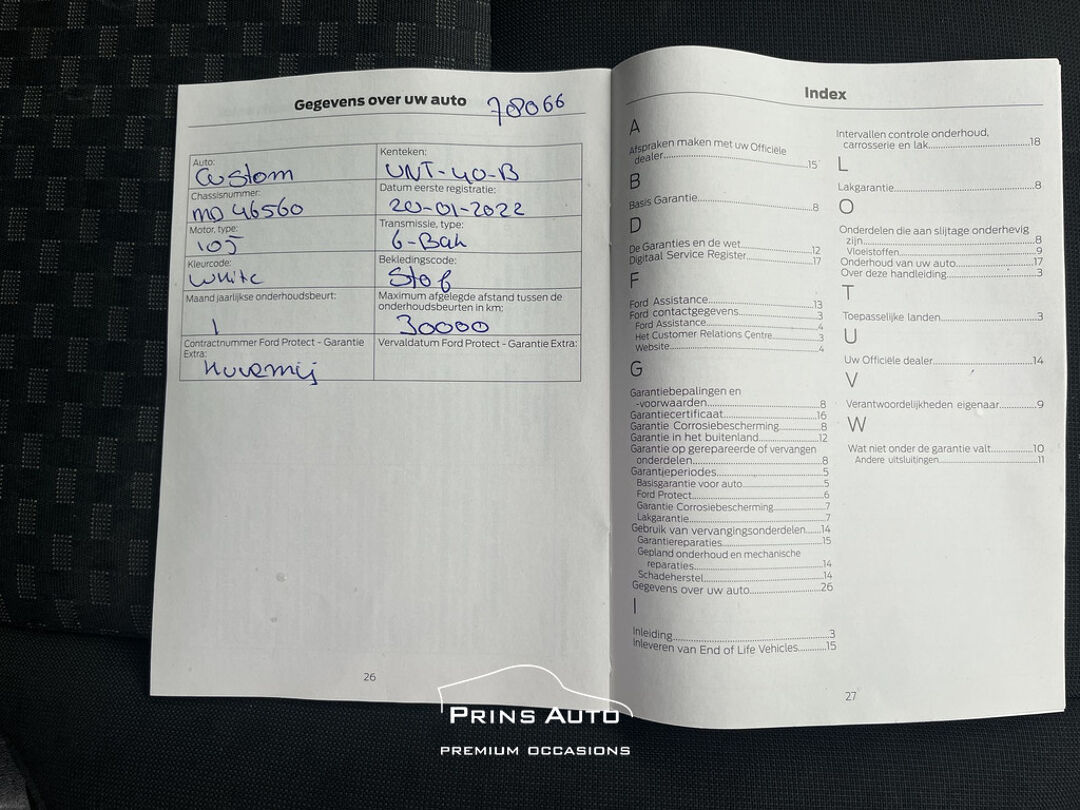 Gegevens over uw auto
708066
Auto:
Custom
Kenteken:
VNT-40-B
Chassisnummer:
MD 46560
Datum eerste registratie:
20-01-2022
Motor, type:
105
Transmissie, type:
6-Bak
Kleurcode:
White
Bekledingscode:
Stof
Maand jaarlijkse onderhoudsbeurt:
1
Maximum afgelegde afstand tussen de
onderhoudsbeurten in km:
30000
Contractnummer Ford Protect - Garantie
Extra:
Vervaldatum Ford Protect - Garantie Extra:
26
Index
A
Afspraken maken met uw Officiële
dealer....15
B
Basis Garantie....8
D
De Garanties en de wet....12
Digitaal Service Register....17
F
Ford Assistance....13
Ford contactgegevens....3
Ford Assistance....4
Het Customer Relations Centre....3
Website....4
G
Garantiebepalingen en
-voorwaarden....8
Garantiecertificaat....16
Garantie Corrosiebescherming....8
Garantie in het buitenland....12
Garantie op gerepareerde of vervangen
onderdelen....8
Garantieperiodes....5
Basisgarantie voor auto....5
Ford Protect....6
Garantie Corrosiebescherming....7
Lakgarantie....7
Gebruik van vervangingsonderdelen....14
Garantiereparaties....15
Gepland onderhoud en mechanische
reparaties....14
Schadeherstel....14
Gegevens over uw auto....26
I
Inleiding....3
Inleveren van End of Life Vehicles....15
Intervallen controle onderhoud,
carrosserie en lak....18
L
Lakgarantie....8
O
Onderdelen die aan slijtage onderhevig
zijn....8
Vloeistoffen....9
Onderhoud van uw auto....17
Over deze handleiding....3
T
Toepasselijke landen....3
U
Uw Officiële dealer....14
V
Verantwoordelijkheden eigenaar....9
W
Wat niet onder de garantie valt....10
Andere uitsluitingen....11
27
PRINS AUTO
PREMIUM OCCASIONS